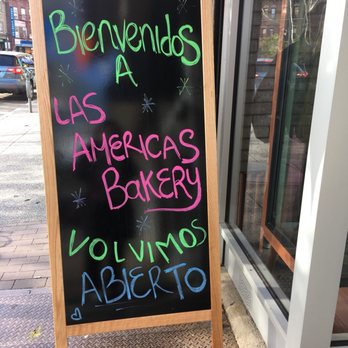 Bienvenidos
A
LAS
AMERICAS
BAKERY
VOLVIMOS
ABIERTO